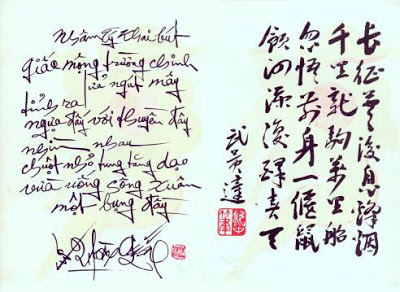 Nhâm Tý khai bút
giấc mộng trường chinh
ngút mây
tỉnh ra
ngựa đây với thuyền đây
nhìn nhau
chuột nhỏ tung tăng dạo
vừa uống sông xuân
một bụng đầy
長征夢後息烽烟
千里龍駒萬里船
忽悟前身一偃鼠
河醉春天
武